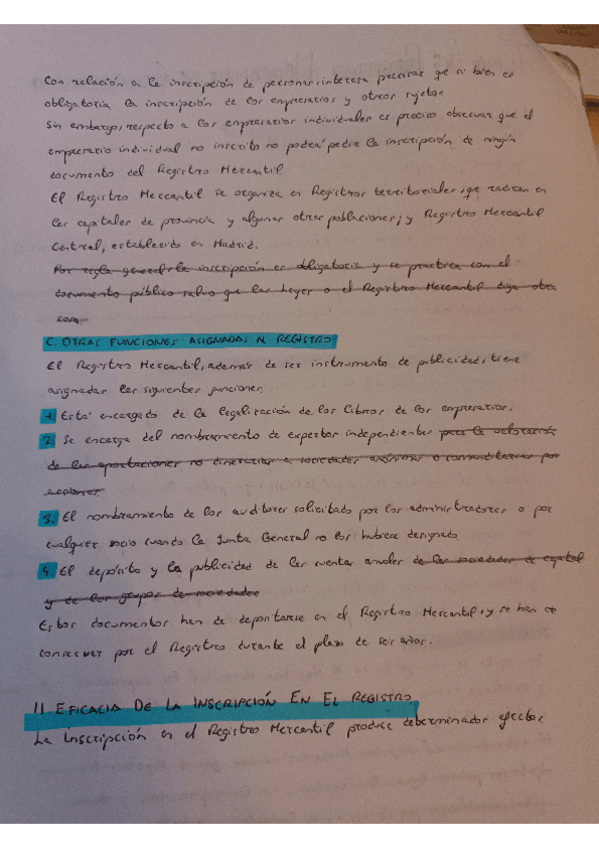 Con relación a la inscripción de personas, interesa precisar que si bien es
obligatoria la inscripción de los empresarios y otros sujetos
Sin embargo, respecto a los empresarios individuales es preciso observar que el
empresario individual no inscrito no podrá pedir la inscripción de ningún
documento del Registro Mercantil
El Registro Mercantil se organiza en Registros territoriales, que radican en
las capitales de provincia y algunas otras poblaciones; y Registro Mercantil
Central, establecido en Madrid.
Por regla general, la inscripción es obligatoria y se practica con el
documento público salvo que las Leyes o el Registro Mercantil diga otra
cosa.
C. OTRAS FUNCIONES ASIGNADAS AL REGISTRO
El Registro Mercantil, además de ser instrumento de publicidad, tiene
asignadas las siguientes funciones:
1. Está encargado de la legalización de los libros de los empresarios.
2. Se encarga del nombramiento de expertos independientes para la valoración
de las aportaciones no dinerarias a sociedades anónimas o comanditarias por
acciones.
3. El nombramiento de los auditores solicitado por los administradores o por
cualquier socio cuando la Junta General no los hubiese designado
4. El depósito y la publicidad de las cuentas anuales de las sociedades de capital
y de los grupos de sociedades
Estos documentos han de depositarse en el Registro Mercantil, y se han de
conservar por el Registro durante el plazo de seis años.
II. EFICACIA DE LA INSCRIPCIÓN EN EL REGISTRO
La Inscripción en el Registro Mercantil produce determinados efectos